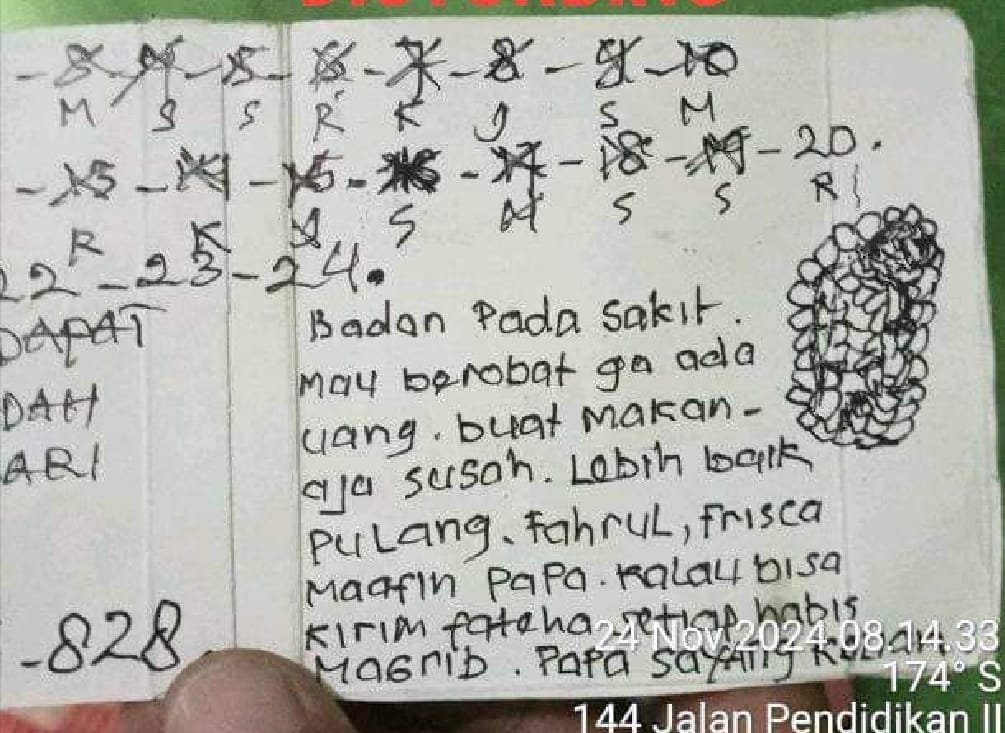 M S S R K J S M
- 18 - 19 - 20.
R K S S S R
22 - 23 - 24.
DAPAT
DAH
ARI
Badan Pada Sakit.
Mau berobat ga ada
uang. buat Makan-
aja susah. Lebih baik
PuLang. Fahrul, Frisca
Maafin PaPa. Kalau bisa
Kirim fateha setiap habis
Magrib. Papa Sayang KaLian.
-828
24 Nov 2024 08.14.33
174° S
144 Jalan Pendidikan II